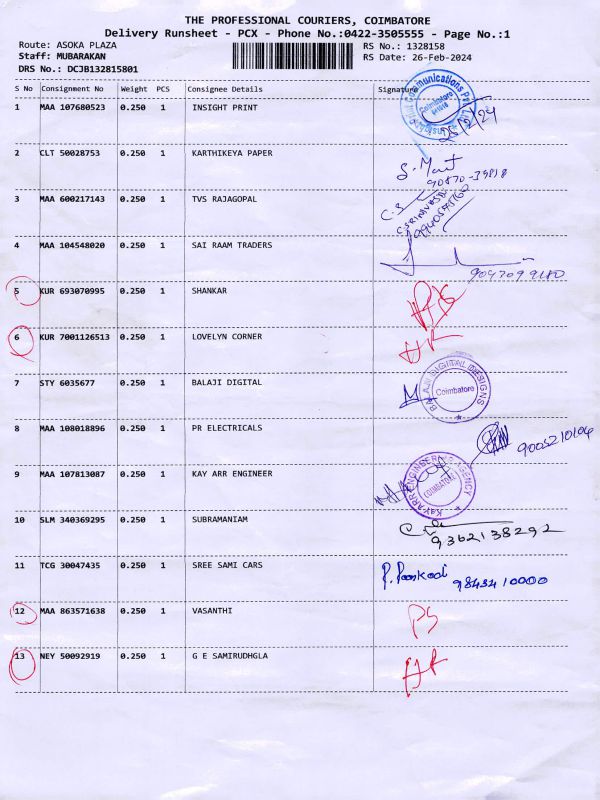 THE PROFESSIONAL COURIERS, COIMBATORE
Delivery Runsheet - PCX - Phone No.:0422-3505555 - Page No.:1
Route: ASOKA PLAZA RS No.: 1328158
Staff: MUBARAKAN RS Date: 26-Feb-2024
DRS No.: DCJB132815801
S No Consignment No Weight PCS Consignee Details Signature
1 MAA 107680523 0.250 1 INSIGHT PRINT
Coimbatore
2 CLT 50028753 0.250 1 KARTHIKEYA PAPER
90870-39818
3 MAA 600217143 0.250 1 TVS RAJAGOPAL
4 MAA 104548020 0.250 1 SAI RAAM TRADERS
9047099180
5 KUR 693070995 0.250 1 SHANKAR
6 KUR 7001126513 0.250 1 LOVELYN CORNER
7 STY 6035677 0.250 1 BALAJI DIGITAL
BALAJI DIGITAL DESIGNS Coimbatore
8 MAA 108018896 0.250 1 PR ELECTRICALS
9005210104
9 MAA 107813087 0.250 1 KAY ARR ENGINEER
KAY ARR ENGINEERS AGENCY COIMBATORE
10 SLM 340369295 0.250 1 SUBRAMANIAM
9362138292
11 TCG 30047435 0.250 1 SREE SAMI CARS
P. Ponkodi 9843410000
12 MAA 863571638 0.250 1 VASANTHI
13 NEY 50092919 0.250 1 G E SAMIRUDHGLA